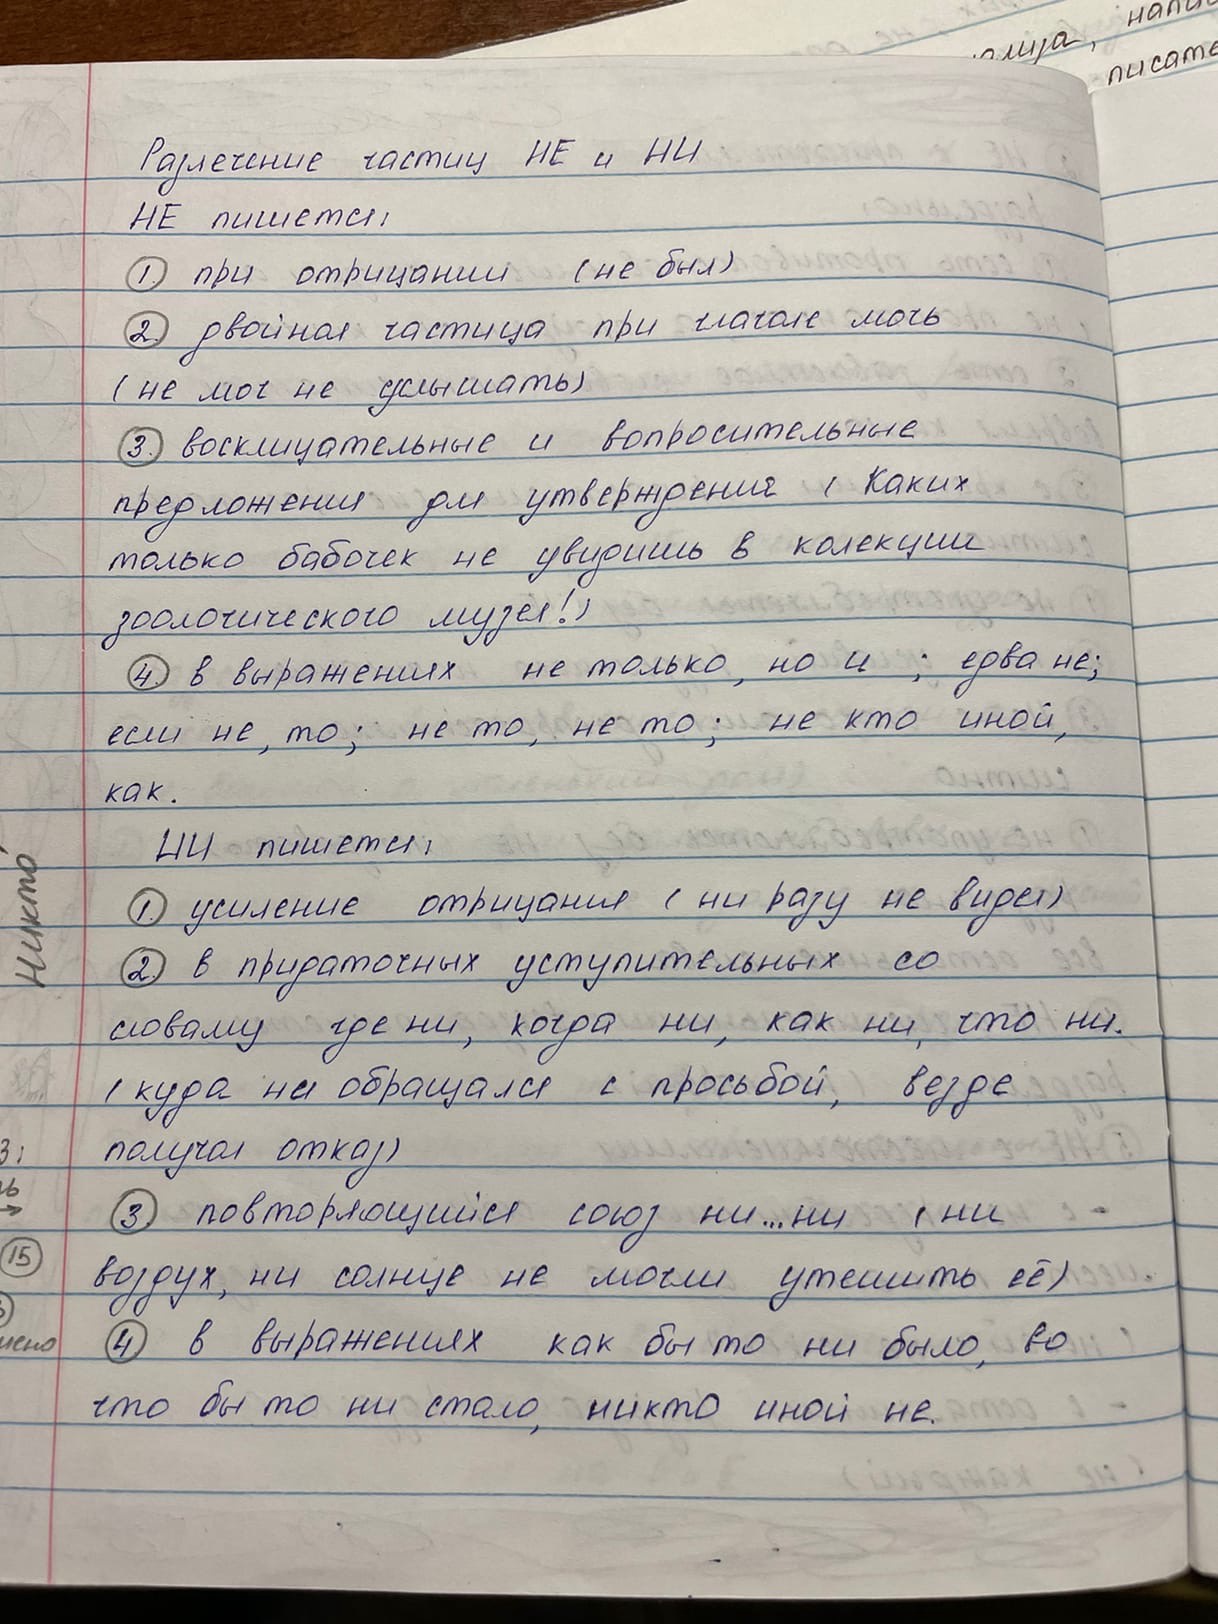 алиуа, напи
писате
Разлечение частиц НЕ и НИ
НЕ пишется:
1. при отрицании (не был)
2. двойная частица при глаголе мочь
(не мог не услышать)
3. восклицательные и вопросительные
предложения для утверждения (Каких
только бабочек не увидишь в колекции
зоологического музея!)
4. в выражениях не только, но и ; едва не;
если не, то; не то, не то; не кто иной,
как.
НИ пишется:
1. усиление отрицания (ни разу не видел)
2. в придаточных уступительных со
словами где ни, когда ни, как ни, что ни.
(куда ни обращался с просьбой, везде
получал отказ)
3 повторяющийся союз ни...ни (ни
воздух, ни солнце не могли утешить её)
4 в выражениях как бы то ни было, во
что бы то ни стало, никто иной не.
никто
15